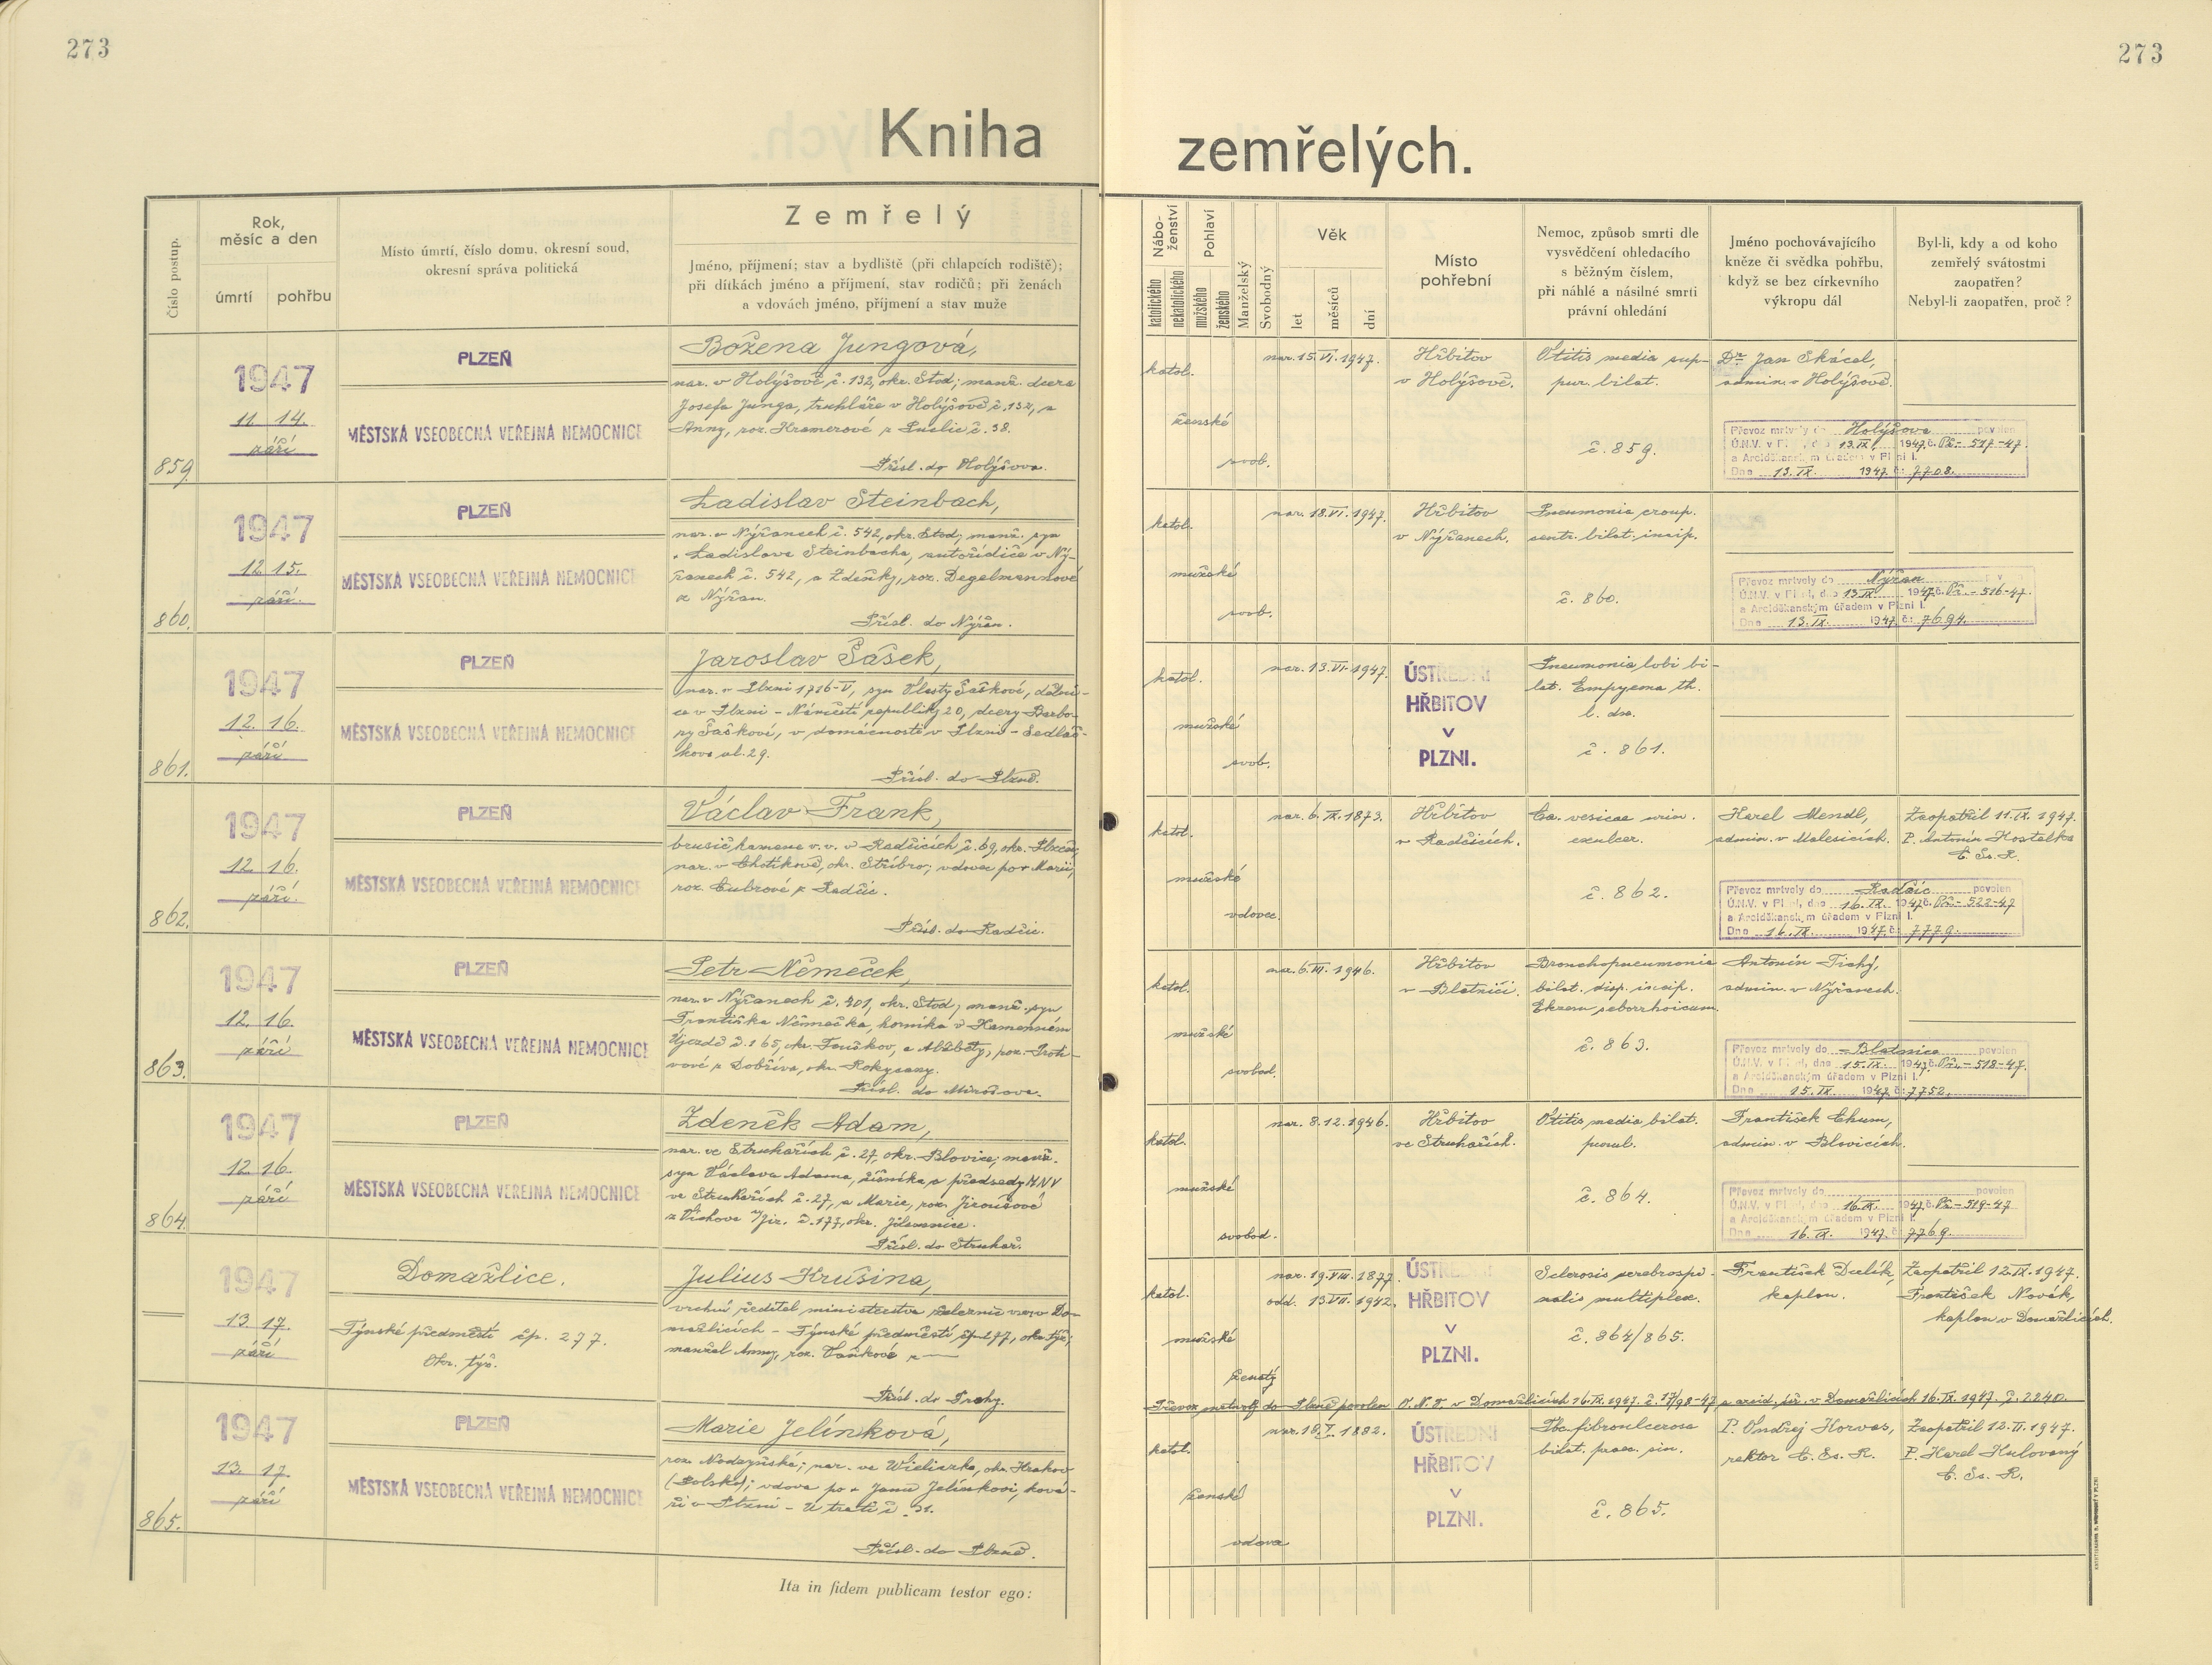 273
273
Kniha
zemřelých.
Číslo postup.
Rok,
měsíc a den
úmrtí
pohřbu
Místo úmrtí, číslo domu, okresní soud,
okresní správa politická
Zemřelý
Jméno, příjmení; stav a bydliště (při chlapcích rodiště);
při dítkách jméno a příjmení, stav rodičů; při ženách
a vdovách jméno, příjmení a stav muže
Nábo-
ženství
katolického
nekatolického
Pohlaví
mužského
ženského
Manželský
Svobodný
Věk
let
měsíců
dní
Místo
pohřební
Nemoc, způsob smrti dle
vysvědčení ohledacího
s běžným číslem,
při náhlé a násilné smrti
právní ohledání
Jméno pochovávajícího
kněze či svědka pohřbu,
když se bez církevního
výkropu dál
Byl-li, kdy a od koho
zemřelý svátostmi
zaopatřen?
Nebyl-li zaopatřen, proč?
859.
1947
11. 14.
září
PLZEŇ
MĚSTSKÁ VŠEOBECNÁ VEŘEJNÁ NEMOCNICE
Božena Jungová,
nar. v Holýšově č. 132, okr. Stod; manž. dcera
Josefa Junga, truhláře v Holýšově č. 132, a
Anny, roz. Kramerové z č. 38.
Přísl. do Holýšova.
katol.
ženské
svob.
nar. 15. VI. 1947.
Hřbitov
v Holýšově.
Otitis media sup-
pur. bilat.
č. 859.
Dr. Jan Skácel,
admin. v Holýšově.
Převoz mrtvoly do Holýšova povolen
Ú.N.V. v Plzni, dne 13.IX. 1947 č. Př.- 517-47.
a Arciděkanským úřadem v Plzni I.
Dne 13. IX. 1947. č. 7708.
860.
1947
12. 15.
září.
PLZEŇ
MĚSTSKÁ VŠEOBECNÁ VEŘEJNÁ NEMOCNICE
Ladislav Steinbach,
nar. v Nýřanech č. 542, okr. Stod; manž. syn
Ladislava Steinbacha, autořidiče v Ný-
řanech č. 542, a Zdeňky, roz. Degelmannové
z Nýřan.
Přísl. do Nýřan.
katol.
mužské
svob.
nar. 18. VI. 1947.
Hřbitov
v Nýřanech.
Pneumonia croup.
centr. bilat. incip.
č. 860.
Převoz mrtvoly do Nýřan
Ú.N.V. v Plzni, dne 13.IX 1947 č. Př. - 516-47.
a Arciděkanským úřadem v Plzni I.
Dne 13. IX. 1947. č. 7694.
861.
1947
12. 16.
září
PLZEŇ
MĚSTSKÁ VŠEOBECNÁ VEŘEJNÁ NEMOCNICE
Jaroslav Šášek,
nar. v Plzni 1716-V, syn Vlasty Šaškové, dělni-
ce v Plzni - Náměstí republiky 20, dcery Barbo-
ry Šaškové, v domácnosti v Plzni - Sedláč-
kova ul. 29.
Přísl. do Plzně.
katol.
mužské
svob.
nar. 13. VI. 1947.
ÚSTŘEDNÍ
HŘBITOV
V
PLZNI.
Pneumonia lobi bi-
lat. Empyema th.
l. dx.
č. 861.
862.
1947
12. 16.
září.
PLZEŇ
MĚSTSKÁ VŠEOBECNÁ VEŘEJNÁ NEMOCNICE
Václav Frank,
brusič kamene v.v. v Radčicích č. 69, okr. Plzeň;
nar. v Chotíkově, okr. Stříbro; vdovec po + Marii,
roz. Cubrové z Radčic.
Přísl. do Radčic.
katol.
mužské
vdovec.
nar. 6. IX. 1873.
Hřbitov
v Radčicích.
Ca. vesicae urin.
exulcer.
č. 862.
Karel Mendl,
admin. v Malesicích.
Zaopatřil 11. IX. 1947.
P. Antonín Kostelka
C. Ss. R.
Převoz mrtvoly do Radčic povolen
Ú.N.V. v Plzni, dne 16. IX. 1947 č. Př.- 522-47
a Arciděkanským úřadem v Plzni I.
Dne 16. IX. 1947. č. 7779.
863.
1947
12. 16.
září
PLZEŇ
MĚSTSKÁ VŠEOBECNÁ VEŘEJNÁ NEMOCNICE
Petr Němeček,
nar. v Nýřanech č. 701, okr. Stod; manž. syn
Františka Němečka, horníka v Kamenném
Újezdě č. 165, okr. Touškov, a Alžběty, roz. Troti-
nové z Dobříva, okr. Rokycany.
Přísl. do Mirošova.
katol.
mužské
svobod.
nar. 6. VII. 1946.
Hřbitov
v Blatnici.
Bronchopneumonia
bilat. disp. incip.
Ekzem seborrhoicum.
č. 863.
Antonín Tichý,
admin. v Nýřanech.
Převoz mrtvoly do Blatnice povolen
Ú.N.V. v Plzni, dne 15. IX. 1947 č. Př. - 518-47.
a Arciděkanským úřadem v Plzni I.
Dne 15. IX. 1947. č. 7752.
864.
1947
12. 16.
září
PLZEŇ
MĚSTSKÁ VŠEOBECNÁ VEŘEJNÁ NEMOCNICE
Zdeněk Adam,
nar. ve Struhařích č. 27, okr. Blovice; manž.
syn Václava Adama, a předsedy MNV
ve Struhařích č. 27, a Marie, roz. Jiroušové
z Víchova n/Jiz. č. 177, okr. Jilemnice.
Přísl. do Struhař.
katol.
mužské
svobod.
nar. 8. 12. 1946.
Hřbitov
ve Struhařích.
Otitis media bilat.
purul.
č. 864.
František Chum,
admin. v Blovicích.
Převoz mrtvoly do povolen
Ú.N.V. v Plzni, dne 16.IX. 1947 č. Př.- 519-47
a Arciděkanským úřadem v Plzni I.
Dne 16. IX. 1947. č. 7769.
1947
13. 17.
září
Domažlice.
Týnské předměstí čp. 277.
Okr. týž.
Julius Krušina,
vrchní ředitel ministerstva železnic v Do-
mažlicích - Týnské předměstí čp. 277, okr. týž;
manžel Anny, roz. Vaňkové z —
Přísl. do Prahy.
katol.
mužské
ženatý
nar. 19. VIII. 1877.
odd. 13. VII. 1942.
ÚSTŘEDNÍ
HŘBITOV
V
PLZNI.
Sclerosis cerebrospi-
nalis multiplex.
č. 864/865.
František Dulík,
kaplan.
Zaopatřil 12. IX. 1947.
František Novák,
kaplan v Domažlicích.
Převoz mrtvoly do Plzně povolen O. N. V. v Domažlicích 16. IX. 1947. č. 17/98-47 a arcid. úř. v Domažlicích 16. IX. 1947. č. 2240.
865.
1947
13. 17.
září
PLZEŇ
MĚSTSKÁ VŠEOBECNÁ VEŘEJNÁ NEMOCNICE
Marie Jelínková,
roz. nar. ve Wieliczka, okr. Krakov
(Polsko); vdova po + Janu Jelínkovi, ková-
ři v Plzni - U trati č. 31.
Přísl. do Plzně.
katol.
ženské
vdova
nar. 18. I. 1882.
ÚSTŘEDNÍ
HŘBITOV
V
PLZNI.
Tbc fibroulcerosa
bilat. praec. sin.
č. 865.
P. Ondřej Horvas,
rektor C. Ss. R.
Zaopatřil 12. II. 1947.
P. Karel Kulovaný
C. Ss. R.
Ita in fidem publicam testor ego: